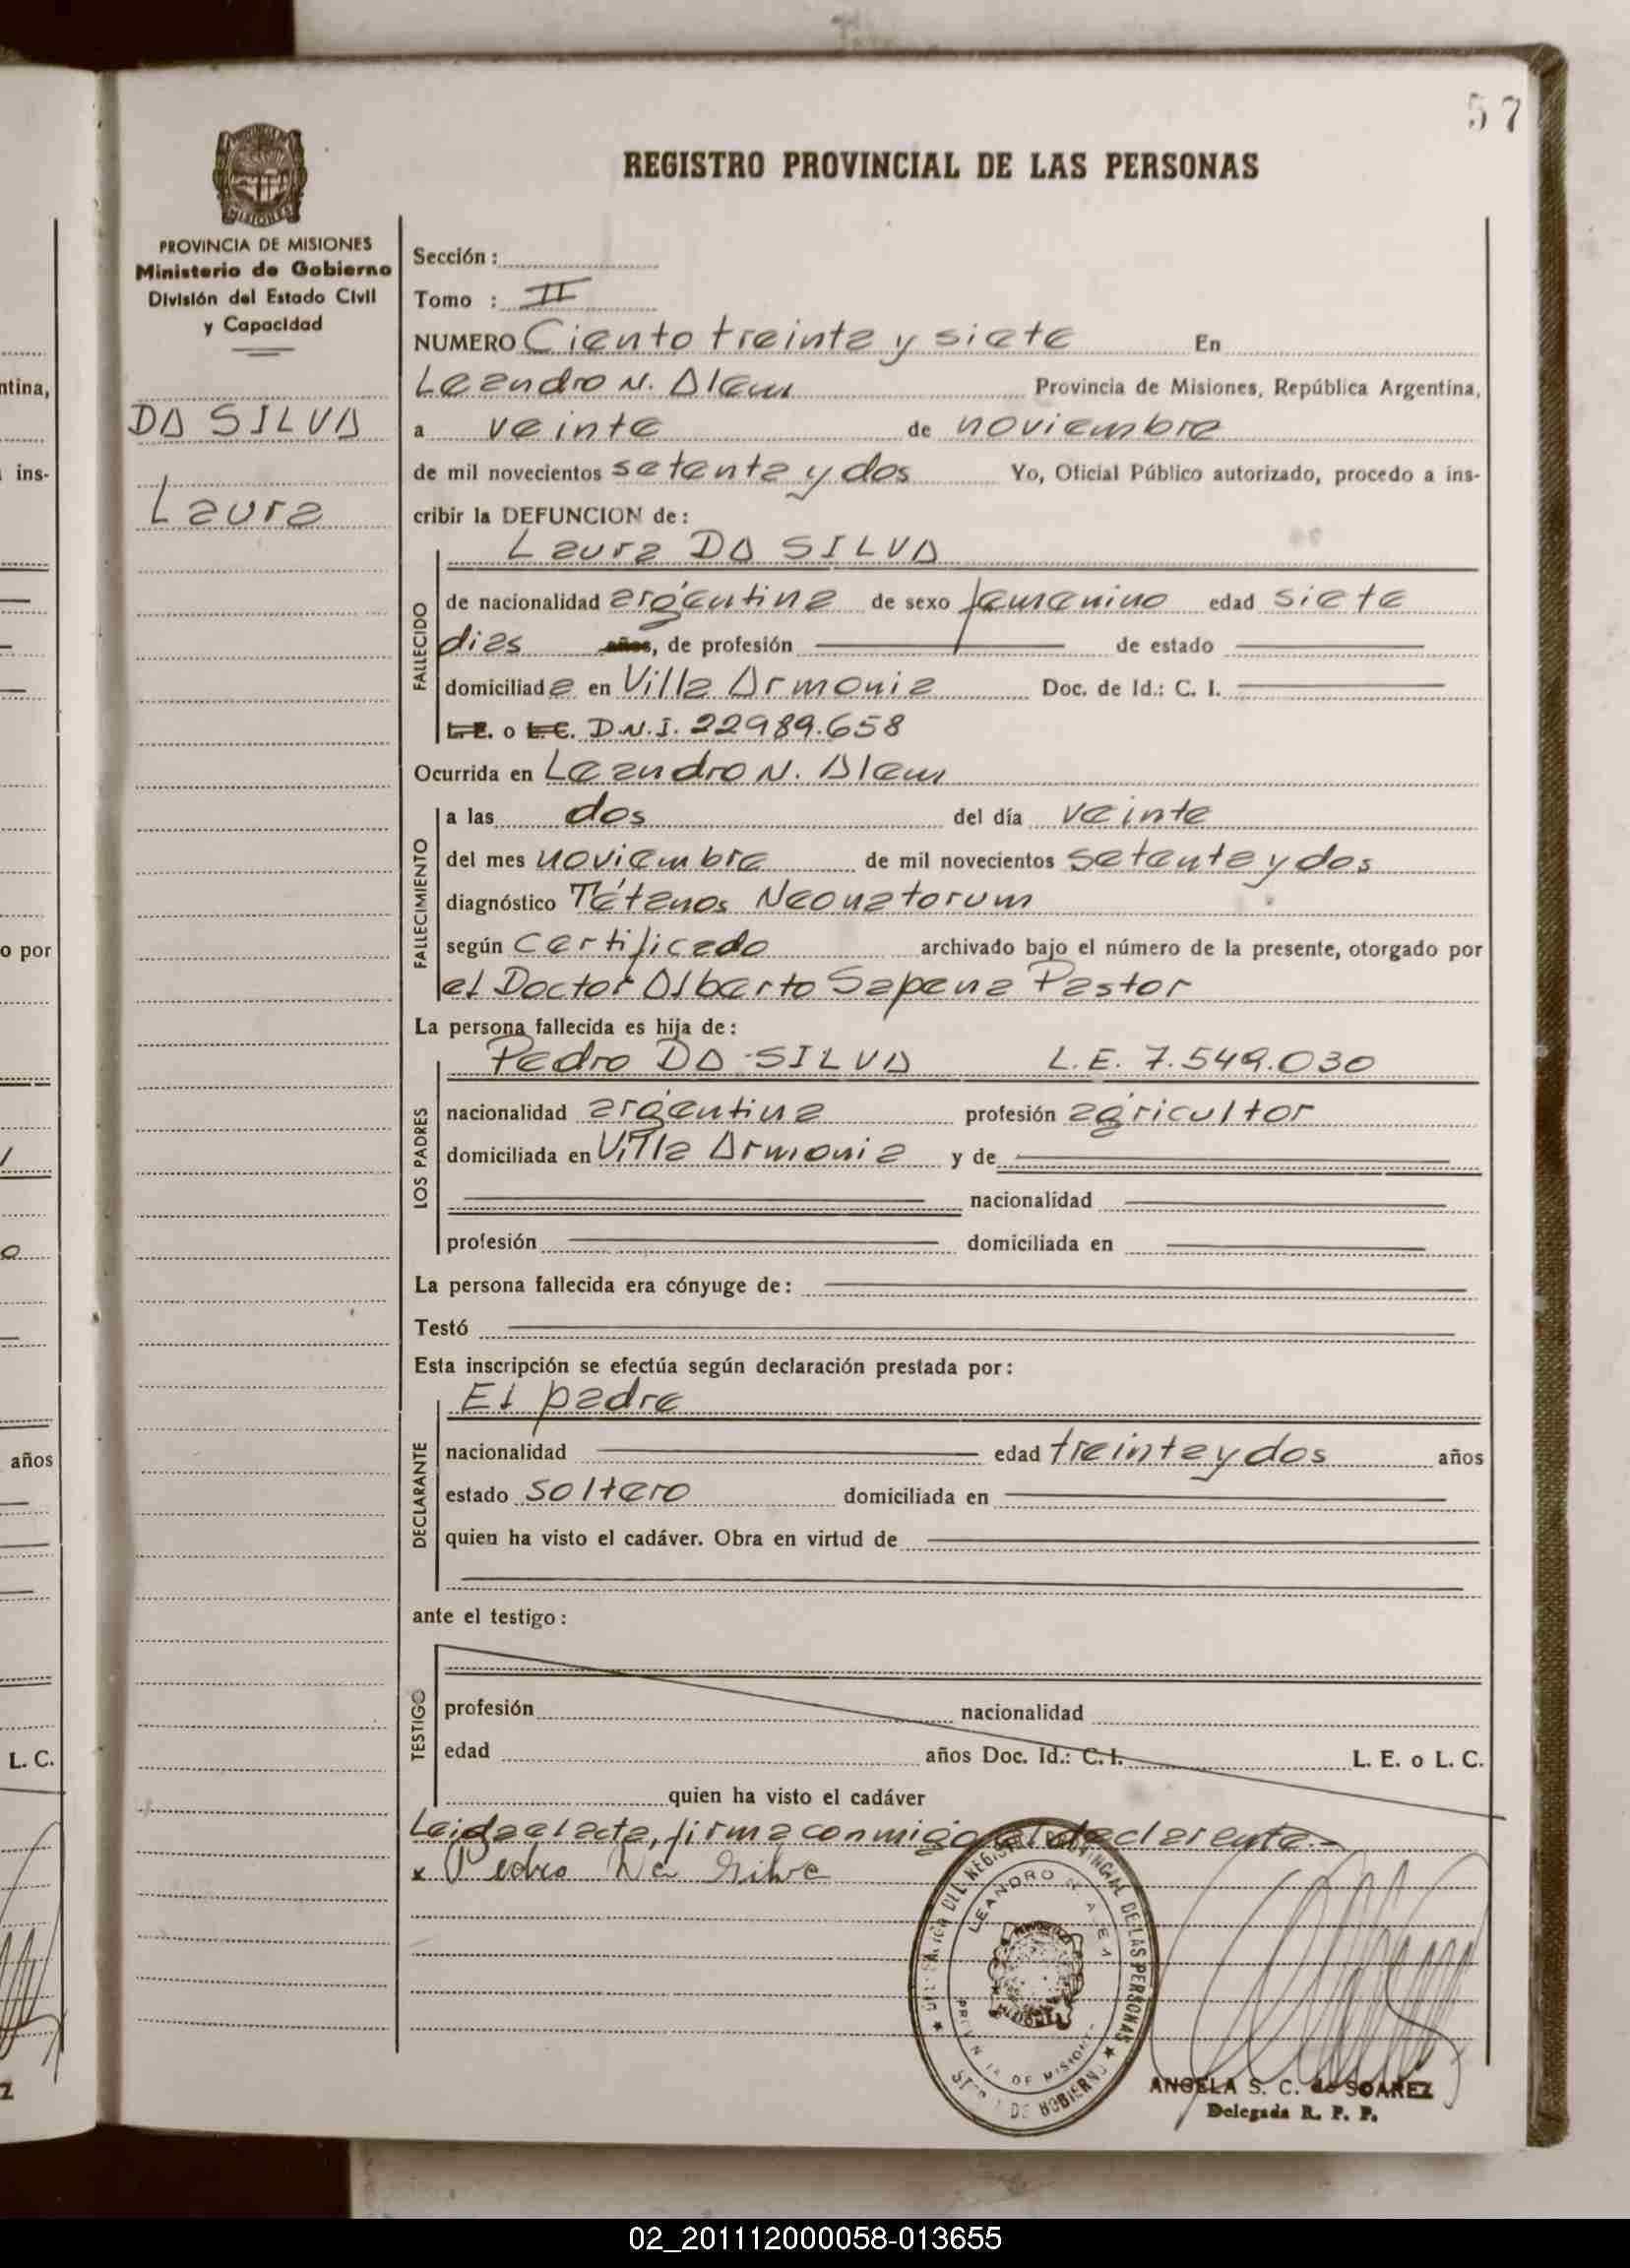 57
REGISTRO PROVINCIAL DE LAS PERSONAS
PROVINCIA DE MISIONES
Ministerio de Gobierno
División del Estado Civil
y Capacidad
DA SILVA
Laura
Sección :
Tomo : II
NUMERO Ciento treinta y siete En
Leandro N. Alem Provincia de Misiones, República Argentina,
a veinte de noviembre
de mil novecientos setenta y dos Yo, Oficial Público autorizado, procedo a ins-
cribir la DEFUNCION de :
Laura DA SILVA
FALLECIDO
de nacionalidad argentina de sexo femenino edad siete
dias años, de profesión de estado
domiciliada en Villa Armonia Doc. de Id.: C. I.
L.E. o L.C. D.N.I. 22989.658
Ocurrida en Leandro N. Alem
FALLECIMIENTO
a las dos del día veinte
del mes noviembre de mil novecientos setenta y dos
diagnóstico Tétanos Neonatorum
según certificado archivado bajo el número de la presente, otorgado por
el Doctor Alberto Sapena Pastor
La persona fallecida es hija de :
LOS PADRES
Pedro DA SILVA L.E. 7.549.030
nacionalidad argentina profesión agricultor
domiciliada en Villa Armonia y de
nacionalidad
profesión domiciliada en
La persona fallecida era cónyuge de :
Testó
Esta inscripción se efectúa según declaración prestada por :
DECLARANTE
El padre
nacionalidad edad treinta y dos años
estado soltero domiciliada en
quien ha visto el cadáver. Obra en virtud de
ante el testigo :
TESTIGO
profesión nacionalidad
edad años Doc. Id.: C. I. L. E. o L. C.
quien ha visto el cadáver
Leida el acta, firma conmigo el declarante.-
x Pedro Da Silva
DEL REGISTRO PROVINCIAL DE LAS PERSONAS
LEANDRO N. ALEM
DE MISIONES
DE GOBIERNO
ANGELA S. C. de SOAREZ
Delegada R. P. P.
ntina,
ins-
o por
años
L. C.
Z
02_201112000058-013655